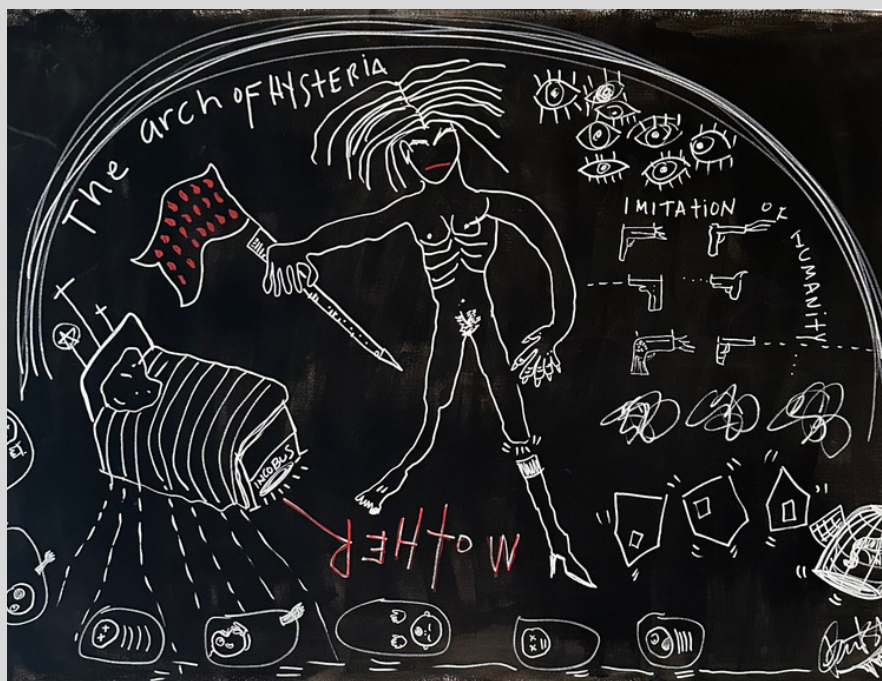 The arch OF HYSTERIA
IMITATION OF
HUMANITY
INCOBUS
MOTHER